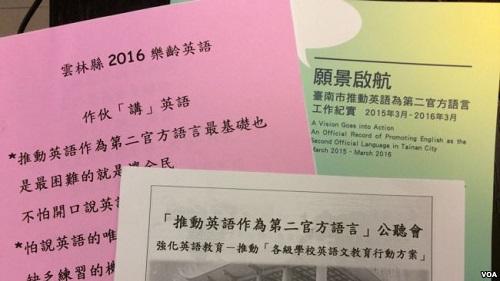 雲林縣 2016 樂齡英語
作伙「講」英語
*推動英語作為第二官方語言最基礎也
是最困難的就是
全民
不怕開口說英語
*怕說英語的唯
缺乏練習的機
願景啟航
臺南市推動英語為第二官方語言
工作紀實 2015年3月-2016年3月
A Vision Goes into Action
An Official Record of Promoting English as the
Second Official Language in Tainan City
March 2015 - March 2016
「推動英語作為第二官方語言」公聽會
強化英語教育－推動「各級學校英語文教育行動方案」
VOA